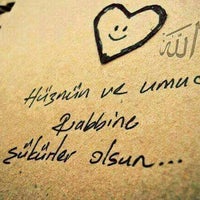 الله
Hüznün ve umud
Rabbine
şükürler olsun...